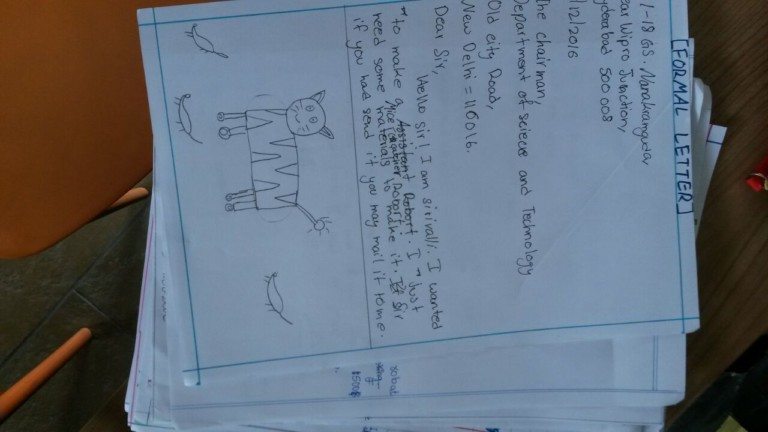 [FORMAL LETTER]
1-18 GS. Nanakramguda
ear Wipro Junction,
yderabad 500 008
/12/2016
he chairman,
Department of science and Technology
Old city Road,
New Delhi = 110016.
Dear Sir,
Hello sir! I am sirivalli. I wanted
to make a Assistant Robort. I just
Mice catcher Robort!
need some materials to make it. Sir
if you had send it you may mail it to me.
robot